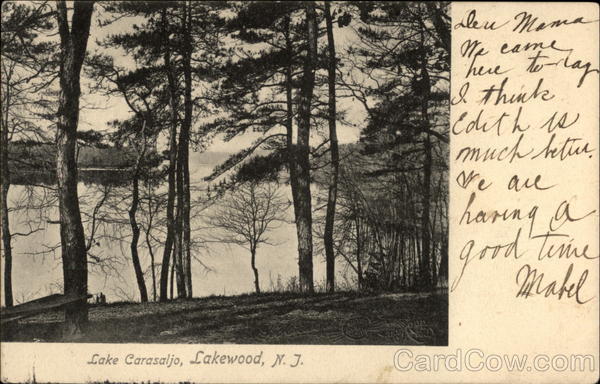 Dear Mama
We came
here to-day
I think
Edith is
much better.
We are
having a
good time
Mabel
Lake Carasaljo, Lakewood, N. J.
CardCow.com